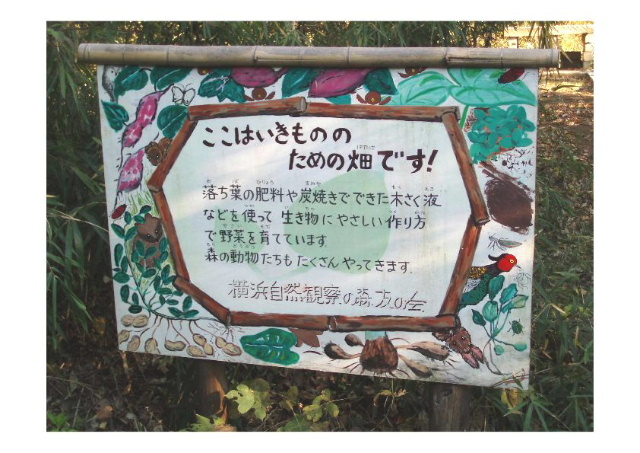 ここはいきものの
ための畑です!
落ち葉の肥料や炭焼きでできた木さく液
などを使って 生き物にやさしい作り方
で野菜を育てています
森の動物たちもたくさんやってきます.
横浜自然観察の森友の会